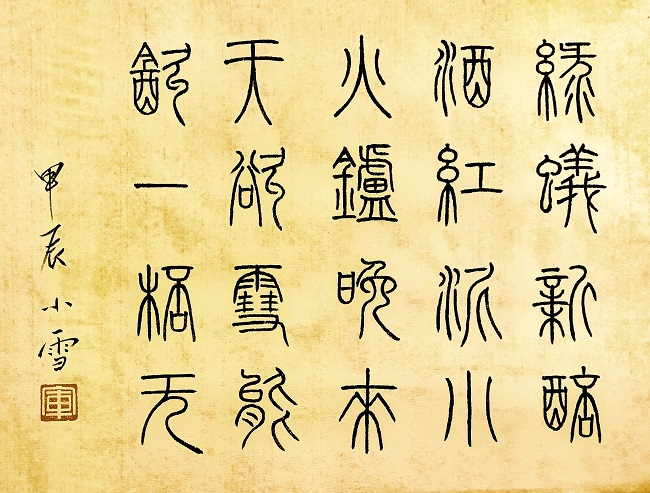 綠蟻新醅
酒紅泥小
火鑪晚來
天欲雪能
飲一桮无
甲辰小雪
軍